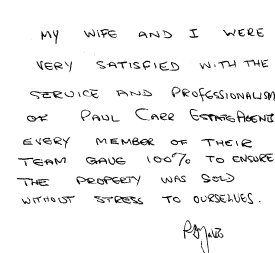 MY WIFE AND I WERE
VERY SATISFIED WITH THE
SERVICE AND PROFESSIONALISM
OF PAUL CARR ESTATE AGENTS
EVERY MEMBER OF THEIR
TEAM GAVE 100% TO ENSURE
THE PROPERTY WAS SOLD
WITHOUT STRESS TO OURSELVES.